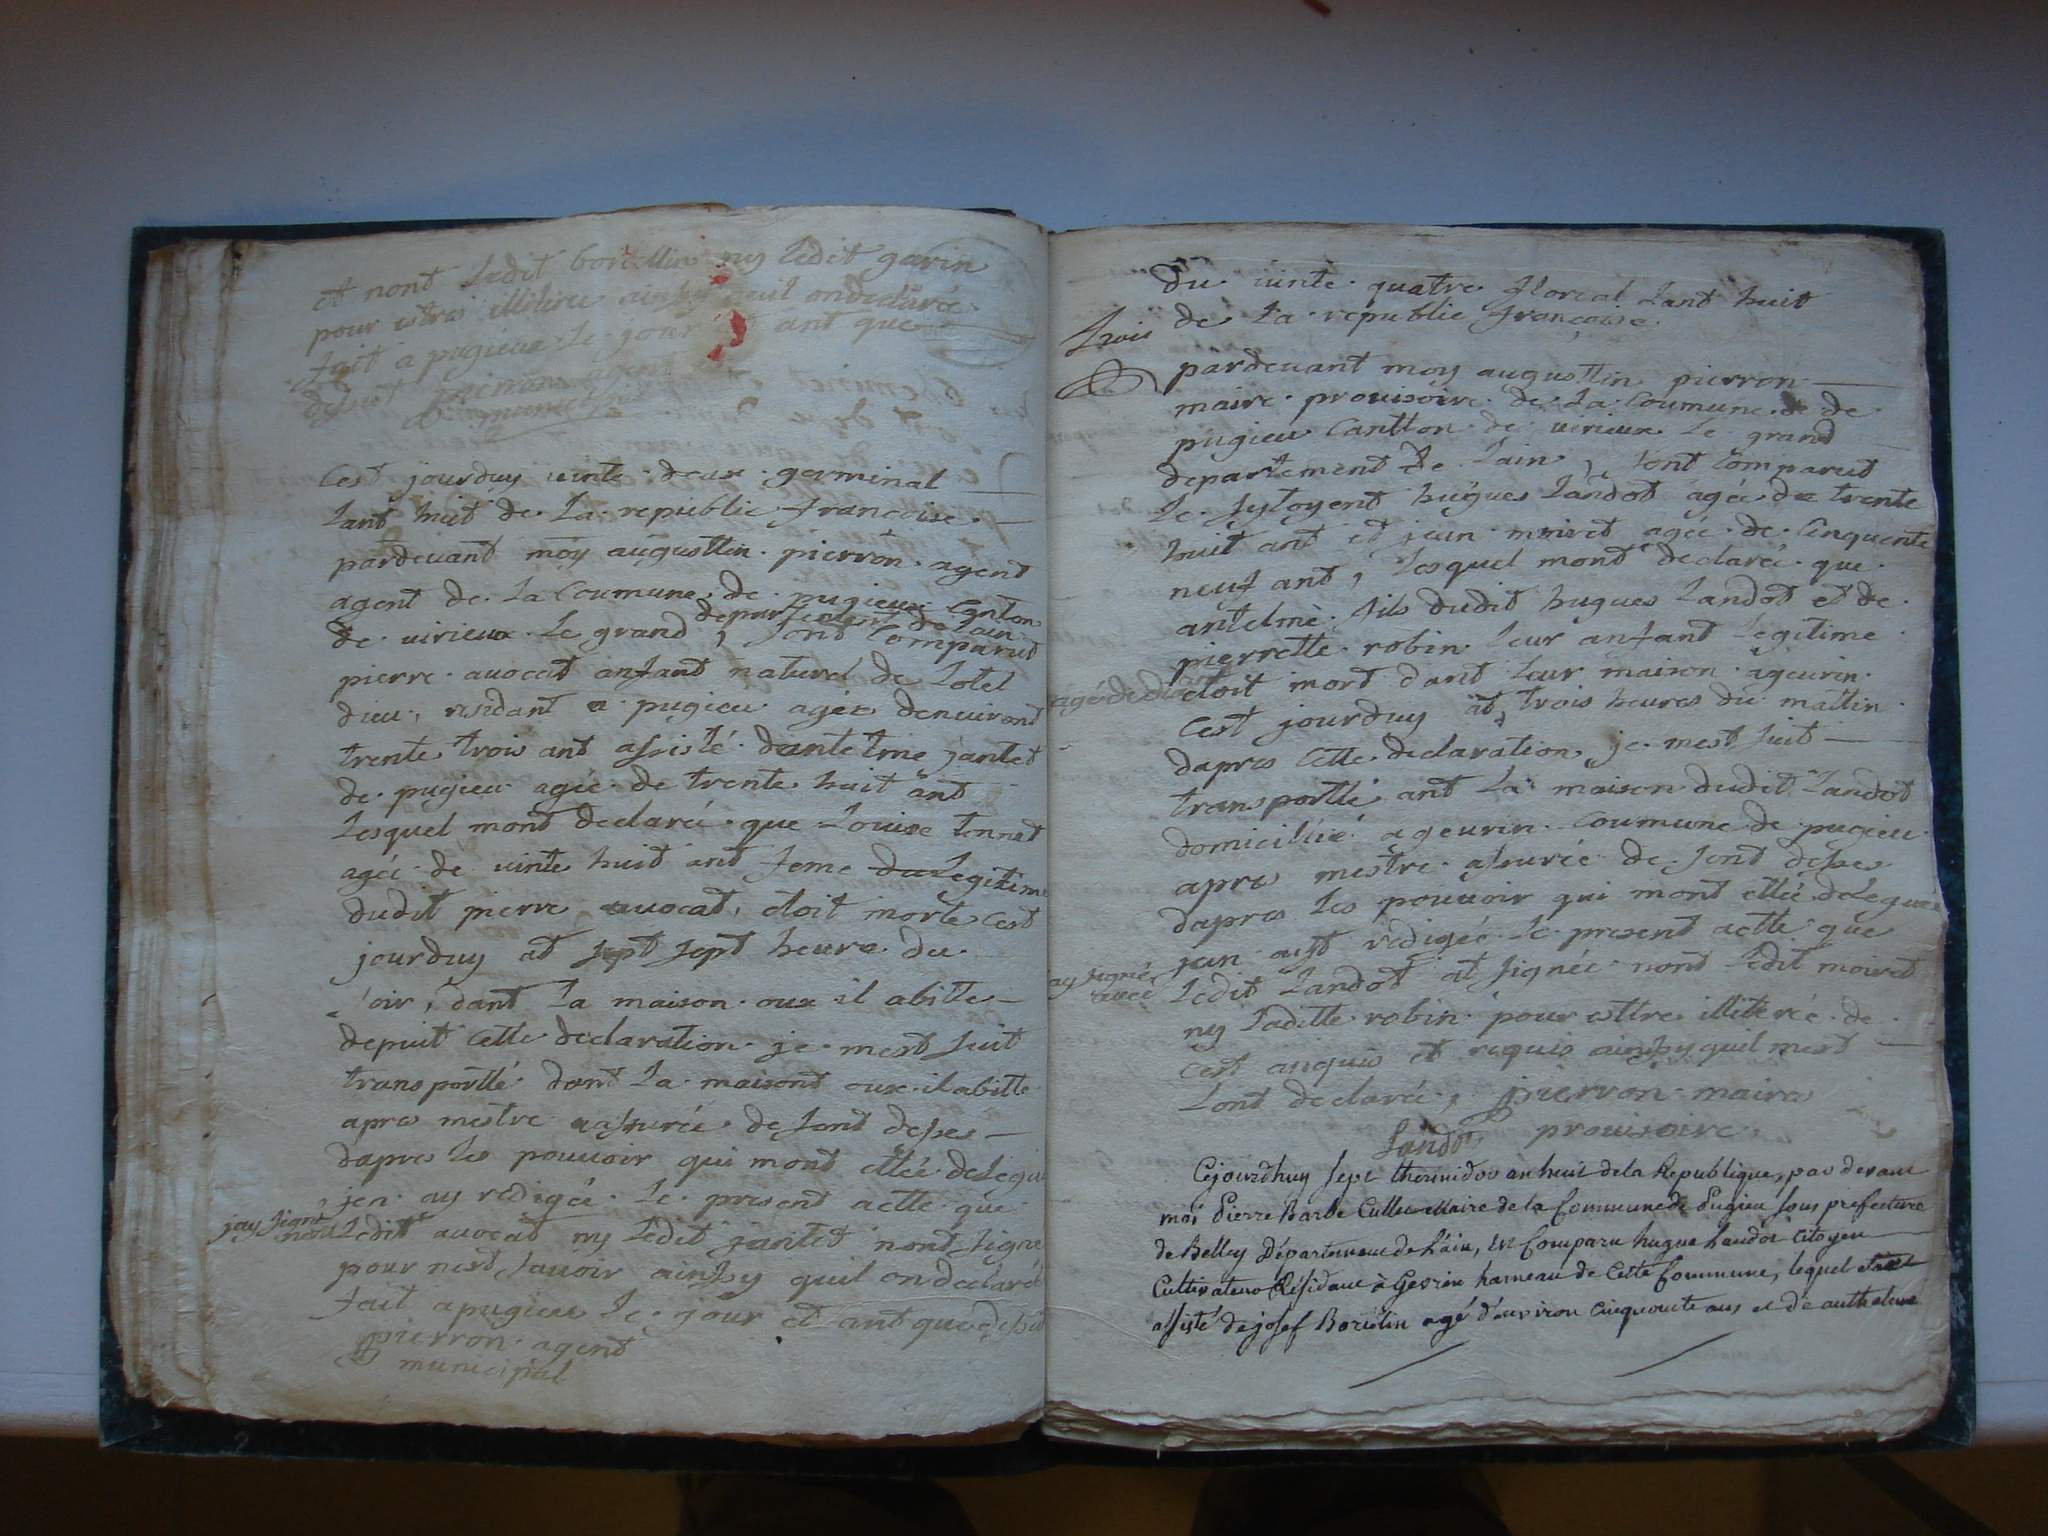 et nont ledit borcellin ny ledit garin
pour estres illiteree ainssy quil ondeclarée
fait a pugieux le jour et ant que
desust pierron agent
municipal
Cest jourduy vinte deux germinal
lant huit de la republic françoise
pardevant moy augusttin pierron agent
agent de la Coumune de pugieux Canton
de virieux le grand, departement de lain sont Comparut
pierre avocat anfant naturel de lotel
dieu, residant a pugieu agée denviront
trente trois ant assisté dantelme jantet
de pugieu agée de trente huit ant
lesquel mont declarée que Louise tonnet
agée de vinte huit ant feme legitime
dudit pierre avocat, etoit morte cest
jourduy at sept sept heure du
soir, dant la maison oux il abitte
depuit cette declaration je mest suit
transportté dant la maisont oux il abitte
apres mestre assurée de sont desses
dapres les pouvoir qui mont ettée delegué
jen ay redigée le present actte que
jay signé
non ledit avocat ny ledit jantet nont signé
pour nest savoir ainssy quil ondeclarée
fait a pugieu le jour et ant que desut
pierron agent
municipal
du vinte quatre floreal lant huit
de la republic françoise
trois
pardevant moy augusttin pierron
maire provisoire de la Coumune de de
pugieu Cantton de virieux le grand
departement de lain, sont Comparut
le sytoyent hugues Landot agée de trente
huit ant et jean moiret agée de Cinquente
neuf ant, lesquel mont declarée que
antelme fils dudit hugues Landot et de
pierrette robin leur anfant legitime
agé de
etoit mort dant leur maison ageurin
Cest jourduy at trois heures du mattin
dapres cette declaration je mest suit
transportté ant la maison dudit Landot
domicilliée ageurin Coumune de pugieu
apres mestre assurée de sont desses
dapres les pouvoir qui mont ettée deleguée
jean aust redigée le present actte que
ay signé
avec ledit Landot at signée nont ledit moiret
ny laditte robin pour esttre illiterée de
cest anquis et requis ainssy quil mest
lont declarée, pierron maire
Landot provisoire
Cejourdhuy sept thermidor an huit de la Republique, par devant
moi Pierre Barbe Cullet Maire de la Commune de Pugieu sous prefecture
de Belley Département de L'ain, est Comparu hugue Landot Citoyen
Cultivateur Résidant à Gevrin hameau de Cette Commune, lequel
assisté de josef Borcelin agé d'environ Cinquante ans et de anthelme